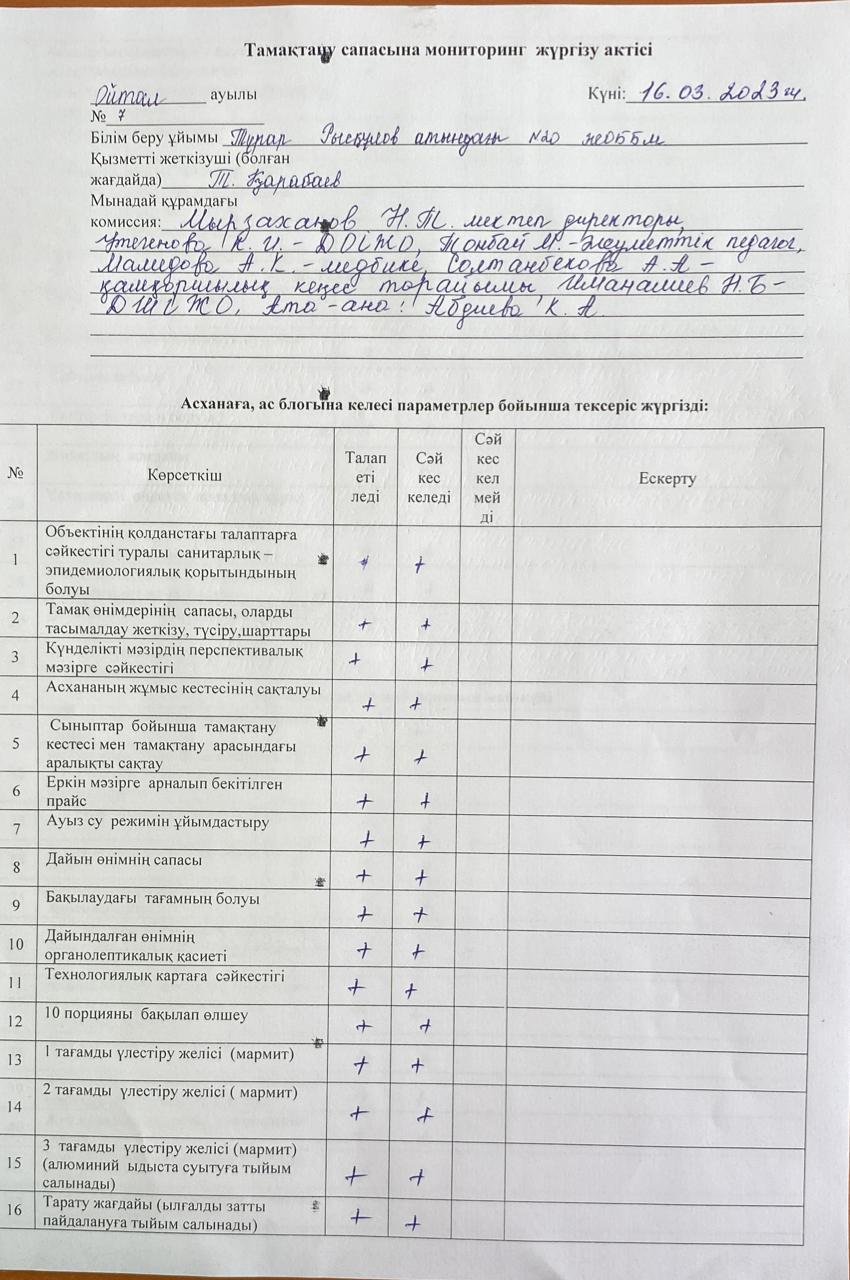 Тамақтану сапасына мониторинг жүргізу актісі
Ойтал ауылы Күні: 16. 03. 2023 ж.
№ 7
Білім беру ұйымы Тұрар Рысқұлов атындағы №20 жОББМ
Қызметті жеткізуші (болған
жағдайда) Т. Қарабаев
Мынадай құрамдағы
комиссия: Мырзаханов Н.Т. мектеп директоры,
Утегенова К. И. - ДОІЖО, Тонбай М. - әлуметтік педагог,
Мамедова А.К. - медбике, Солтанбекова А.А -
қамқоршылық кеңес төрайымы Иманалиев Н.Б -
ДШІЖО, Ата-ана: Абдиева К. А.
Асханаға, ас блогына келесі параметрлер бойынша тексеріс жүргізді:
№ Көрсеткіш Талап Сәй Сәй Ескерту
еті кес кес
леді келеді кел
мей
ді
1 Объектінің қолданстағы талаптарға
сәйкестігі туралы санитарлық –
эпидемиологиялық қорытындының + +
болуы
2 Тамақ өнімдерінің сапасы, оларды
тасымалдау жеткізу, түсіру,шарттары + +
3 Күнделікті мәзірдің перспективалық
мәзірге сәйкестігі + +
4 Асхананың жұмыс кестесінің сақталуы + +
5 Сыныптар бойынша тамақтану
кестесі мен тамақтану арасындағы
аралықты сақтау + +
6 Еркін мәзірге арналып бекітілген
прайс + +
7 Ауыз су режимін ұйымдастыру + +
8 Дайын өнімнің сапасы + +
9 Бақылаудағы тағамның болуы + +
10 Дайындалған өнімнің
органолептикалық қасиеті + +
11 Технологиялық картаға сәйкестігі + +
12 10 порцияны бақылап өлшеу + +
13 1 тағамды үлестіру желісі (мармит) + +
14 2 тағамды үлестіру желісі ( мармит) + +
15 3 тағамды үлестіру желісі (мармит)
(алюминий ыдыста суытуға тыйым
салынады) + +
16 Тарату жағдайы (ылғалды затты
пайдалануға тыйым салынады) + +